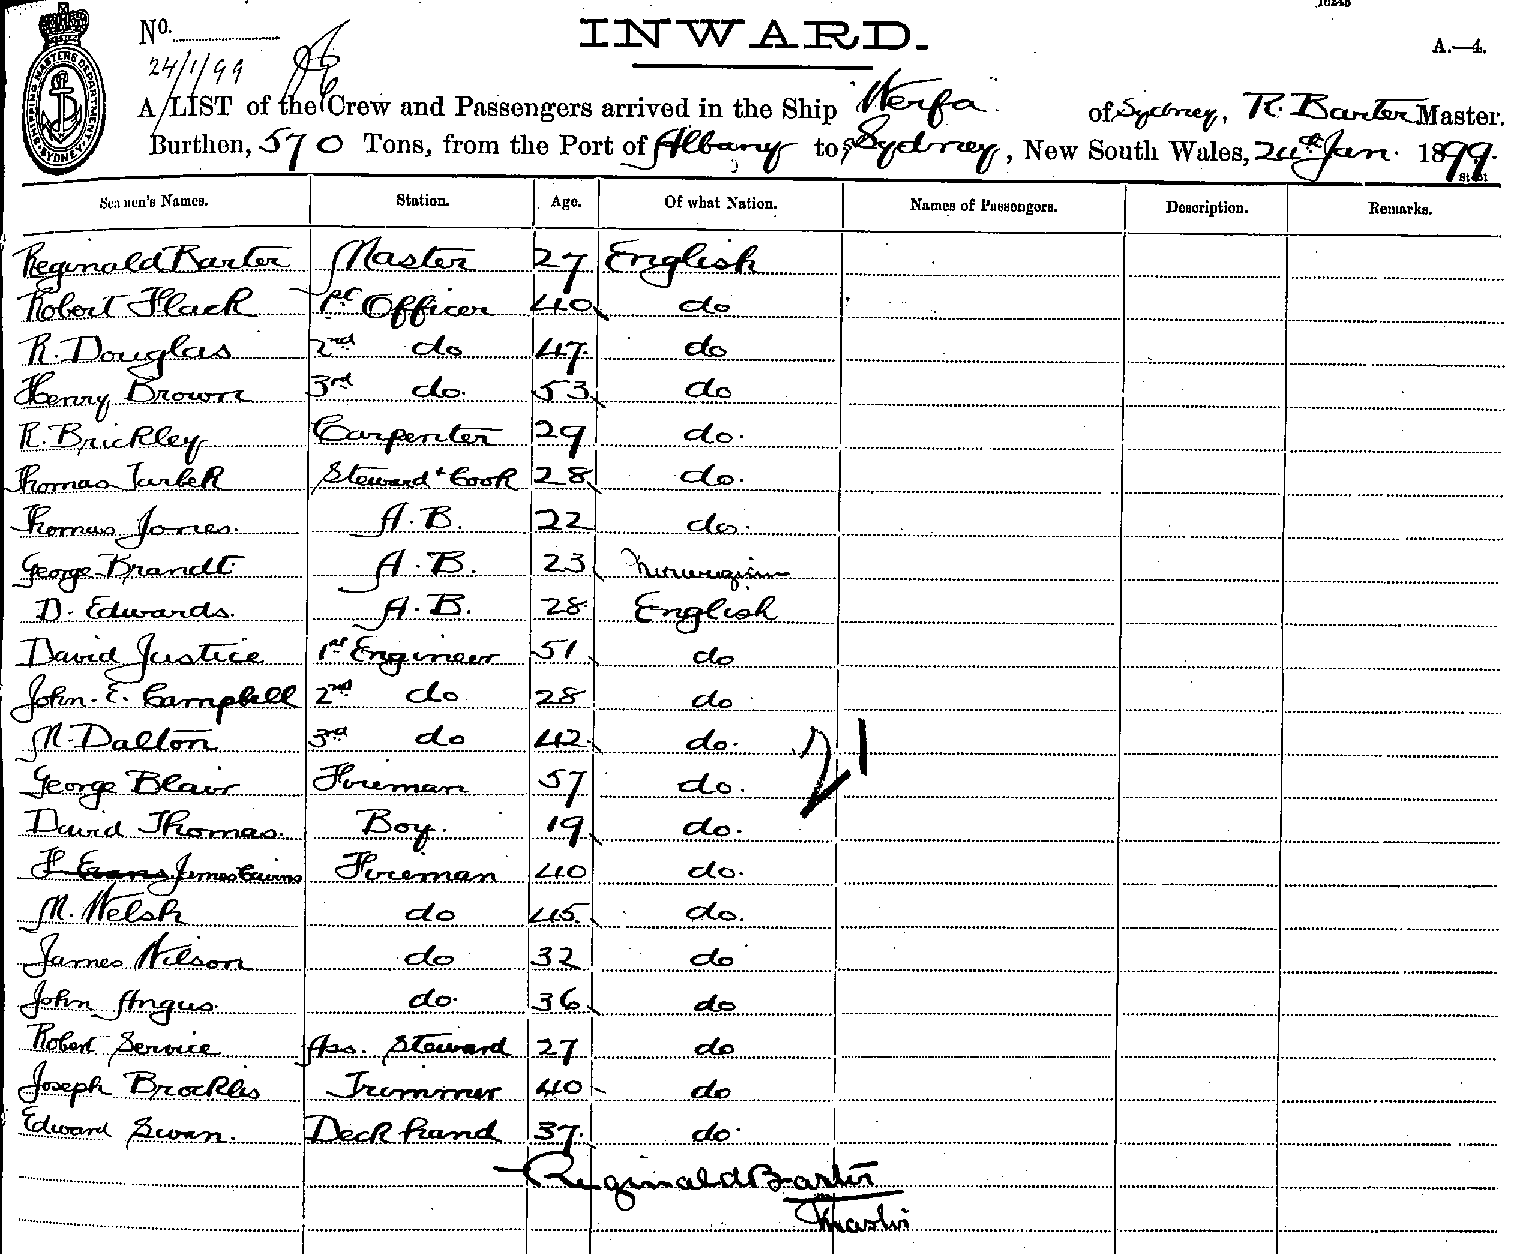 16243
No.
INWARD.
A.—4.
24/1/99
SHIPPING MASTERS DEPARTMENT SYDNEY
A LIST of the Crew and Passengers arrived in the Ship "Werfa" of Sydney, R. Barter Master.
Burthen, 570 Tons, from the Port of Albany to Sydney, New South Wales, 24th Jan. 1899.
Seamen's Names. Station. Age. Of what Nation. Names of Passengers. Description. Remarks.
Reginald Barter Master 27 English
Robert Flack 1st Officer 40 do
R. Douglas 2nd do 47 do
Henry Brown 3rd do. 53 do
R. Brickley Carpenter 29 do.
Thomas Turbek Steward + Cook 28 do.
Thomas Jones. A.B. 22 do.
George Brandt A.B. 23 Norwegian
D. Edwards. A.B. 28 English
David Justice 1st Engineer 51 do
John. E. Campbell 2nd do 28 do
M. Dalton 3rd do 42 do.
21
George Blair Fireman 57 do.
David Thomas. Boy. 19 do.
F Evans James Cairns Fireman 40 do.
M. Welsh do 45 do.
James Wilson do 32 do
John Angus. do. 36 do
Robert Service Ass. Steward 27 do
Joseph Brockles Trimmer 40 do
Edward Swan. Deck hand 37. do.
Reginald Barter
Master